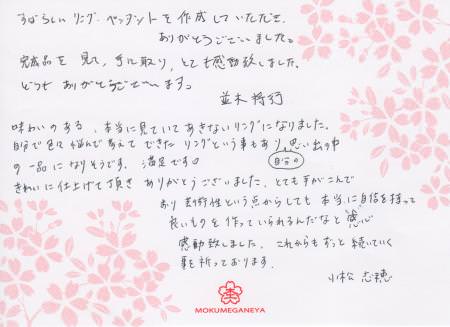 すばらしいリング、ペンダントを作成していただき、
ありがとうございました。
完成品を見て、手に取り、とても感動致しました。
どうも ありがとうございます。
並木 将行
味わいのある、本当に見ていてあきないリングになりました。
自分で色々悩んで考えて できたリングという事もあり、思い出の中
の一品になりそうです。満足です
自分の
きれいに仕上げて頂き ありがとうございました。とても手がこんで
おり 芸術性という点からしても 本当に自信を持って
良いものを作っていられるんだなと 感心
感動致しました。これからもずっと続いていく
事を祈っております。
小松 志穂
MOKUMEGANEYA